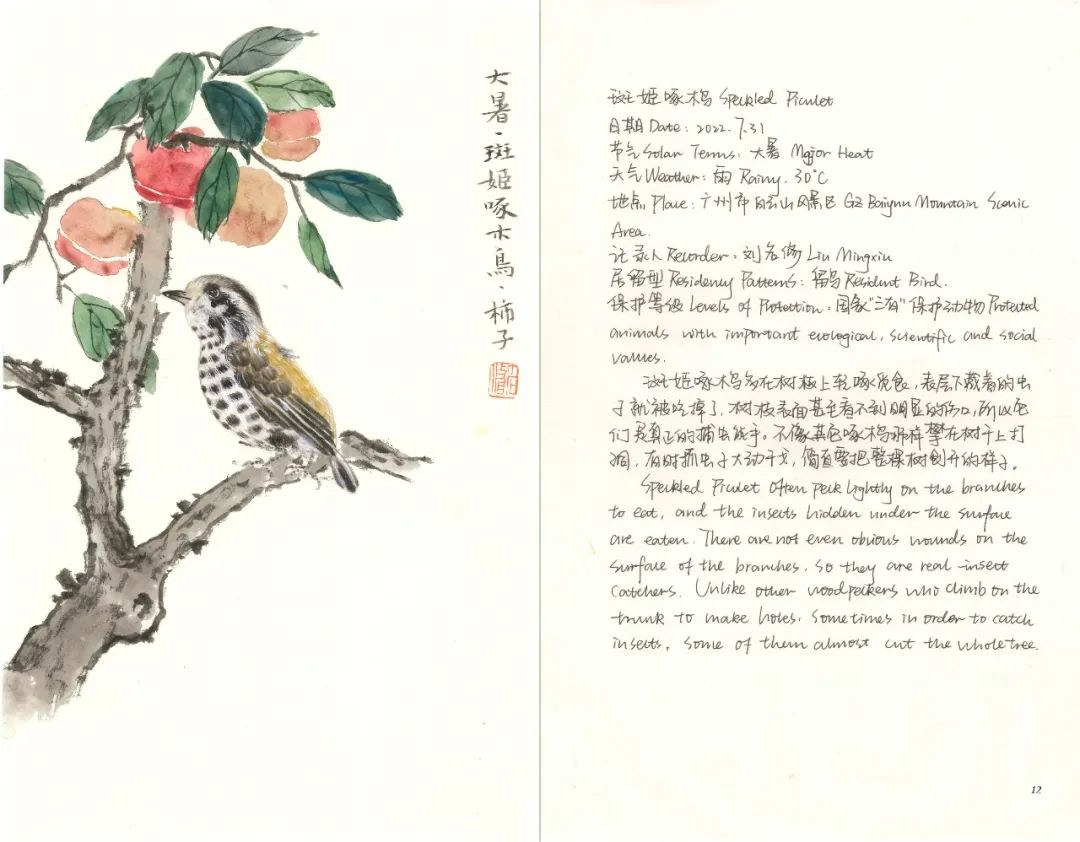 大暑·斑姬啄木鳥·柿子
斑姬啄木鸟 Speckled Piculet
日期 Date: 2022.7.31
节气 Solar Terms: 大暑 Major Heat
天气 Weather: 雨 Rainy. 30°C
地点 Place: 广州市白云山风景区 GZ Baiyun Mountain Scenic
Area.
记录人 Recorder: 刘名修 Liu Mingxiu
居留型 Residency Patterns: 留鸟 Resident Bird.
保护等级 Levels of Protection: 国家"三有"保护动物 Protected
animals with important ecological, scientific and social
values.
斑姬啄木鸟多在树枝上轻啄觅食，表层下藏着的虫
子就被吃掉了，树枝表面甚至看不到明显的伤口，所以它
们是真正的捕虫能手。不像其它啄木鸟那样攀在树干上打
洞，有时抓虫子大动干戈，简直要把整棵树刨开的样子。
Speckled Piculet often peck lightly on the branches
to eat, and the insects hidden under the surface
are eaten. There are not even obvious wounds on the
surface of the branches. So they are real insect
catchers. Unlike other woodpeckers who climb on the
trunk to make holes. Sometimes in order to catch
insects, some of them almost cut the whole tree.
12